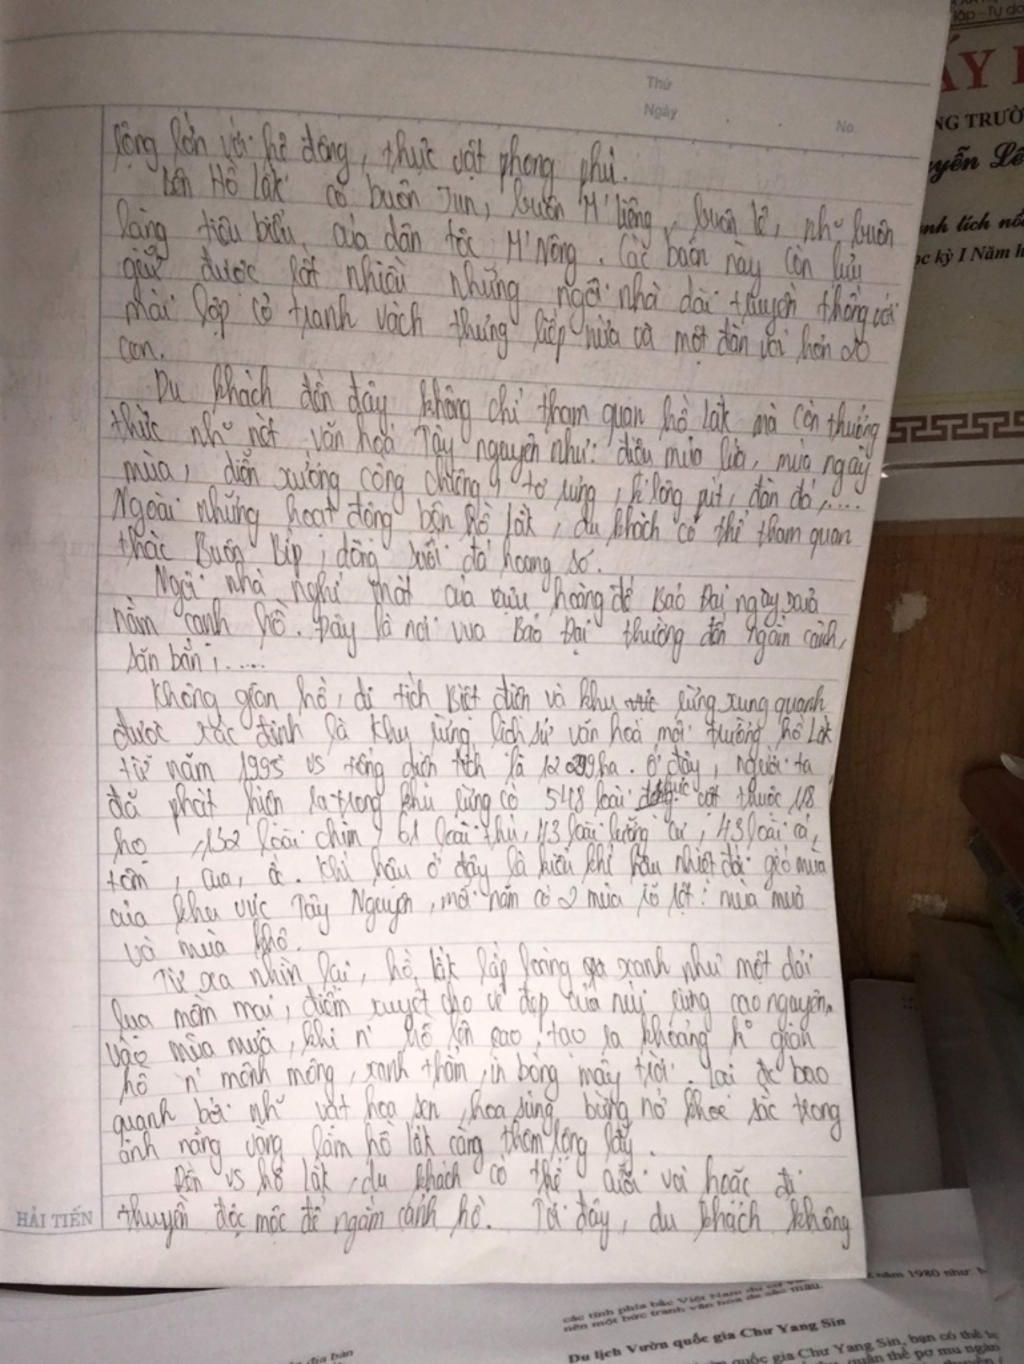 Thứ
Ngày
No
rộng lớn với hệ động, thực vật phong phú.
Bên Hồ Lắk có buôn Jun, buôn M'liêng, buôn lê, nh~ buôn
làng tiêu biểu của dân tộc M'Nông. Các buôn này còn lưu
giữ được rất nhiều những ngôi nhà dài truyền thống với
mái lợp cỏ tranh vách thưng liếp nứa và một đàn voi hơn 20
con.
Du khách đến đây không chỉ tham quan hồ Lắk mà còn thưởng
thức nh~ nét văn hoá Tây nguyên như: điệu múa lửa, múa ngày
mùa, diễn xướng cồng chiêng, tơ rưng, k'lông pút, đàn đá,....
Ngoài những hoạt động bên hồ Lắk, du khách có thể tham quan
thác Buôn Bíp, dòng suối đá hoang sơ.
Ngôi nhà nghỉ mát của cựu hoàng đế Bảo Đại ngày xưa
nằm cạnh hồ. Đây là nơi vua Bảo Đại thường đến ngắm cảnh,
săn bắn,.....
Không gian hồ, di tích Biệt điện và khu rừng xung quanh
được xác định là khu rừng lịch sử văn hoá môi trường hồ Lắk
từ năm 1995 vs tổng diện tích là ha. Ở đây, người ta
đã phát hiện ra trong khu rừng có 548 loài thực vật thuộc 118
họ, 132 loài chim, 61 loài thú, 43 loài lưỡng cư, 43 loài cá,
tôm, cua, ốc. Khí hậu ở đây là kiểu khí hậu nhiệt đới gió mùa
của khu vực Tây Nguyên, mỗi năm có 2 mùa rõ rệt: mùa mưa
và mùa khô.
Từ xa nhìn lại, hồ Lắk lấp loáng xanh như một dải
lụa mềm mại, điểm xuyết cho vẻ đẹp của núi rừng cao nguyên.
vào mùa mưa, khi n' hồ lên cao, tạo ra khoảng k° gian
hồ n' mênh mông, xanh thẳm, in bóng mây trời. Lại đc bao
quanh bởi nh~ vạt hoa sen, hoa súng bừng nở khoe sắc trong
ánh nắng vàng làm hồ Lắk càng thêm lộng lẫy.
Đến vs hồ Lắk, du khách có thể cưỡi voi hoặc đi
thuyền độc mộc để ngắm cảnh hồ. Tới đây, du khách không
HẢI TIẾN
lập - Tự do
ẤY
NG TRƯỜ
yễn Lê
nh tích nổ
ọc kỳ I Năm h
các tỉnh phía bắc Việt Nam
nên một bức tranh văn hóa đa sắc màu.
năm 1980 như:
địa bàn
Du lịch Vườn quốc gia Chư Yang Sin
quốc gia Chư Yang Sin, bạn có thể
quần thể pơ mu ngàn